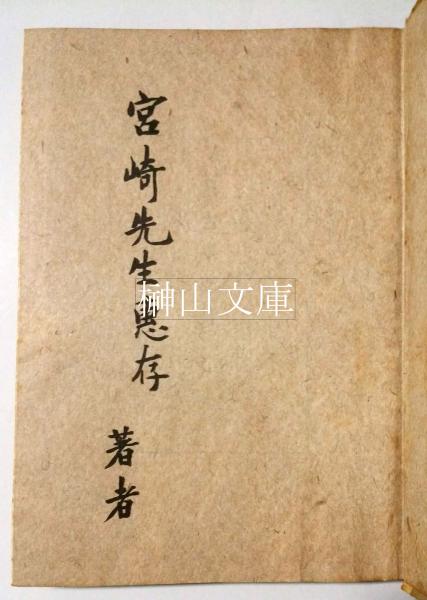 宮崎先生惠存
著者
榊山文庫